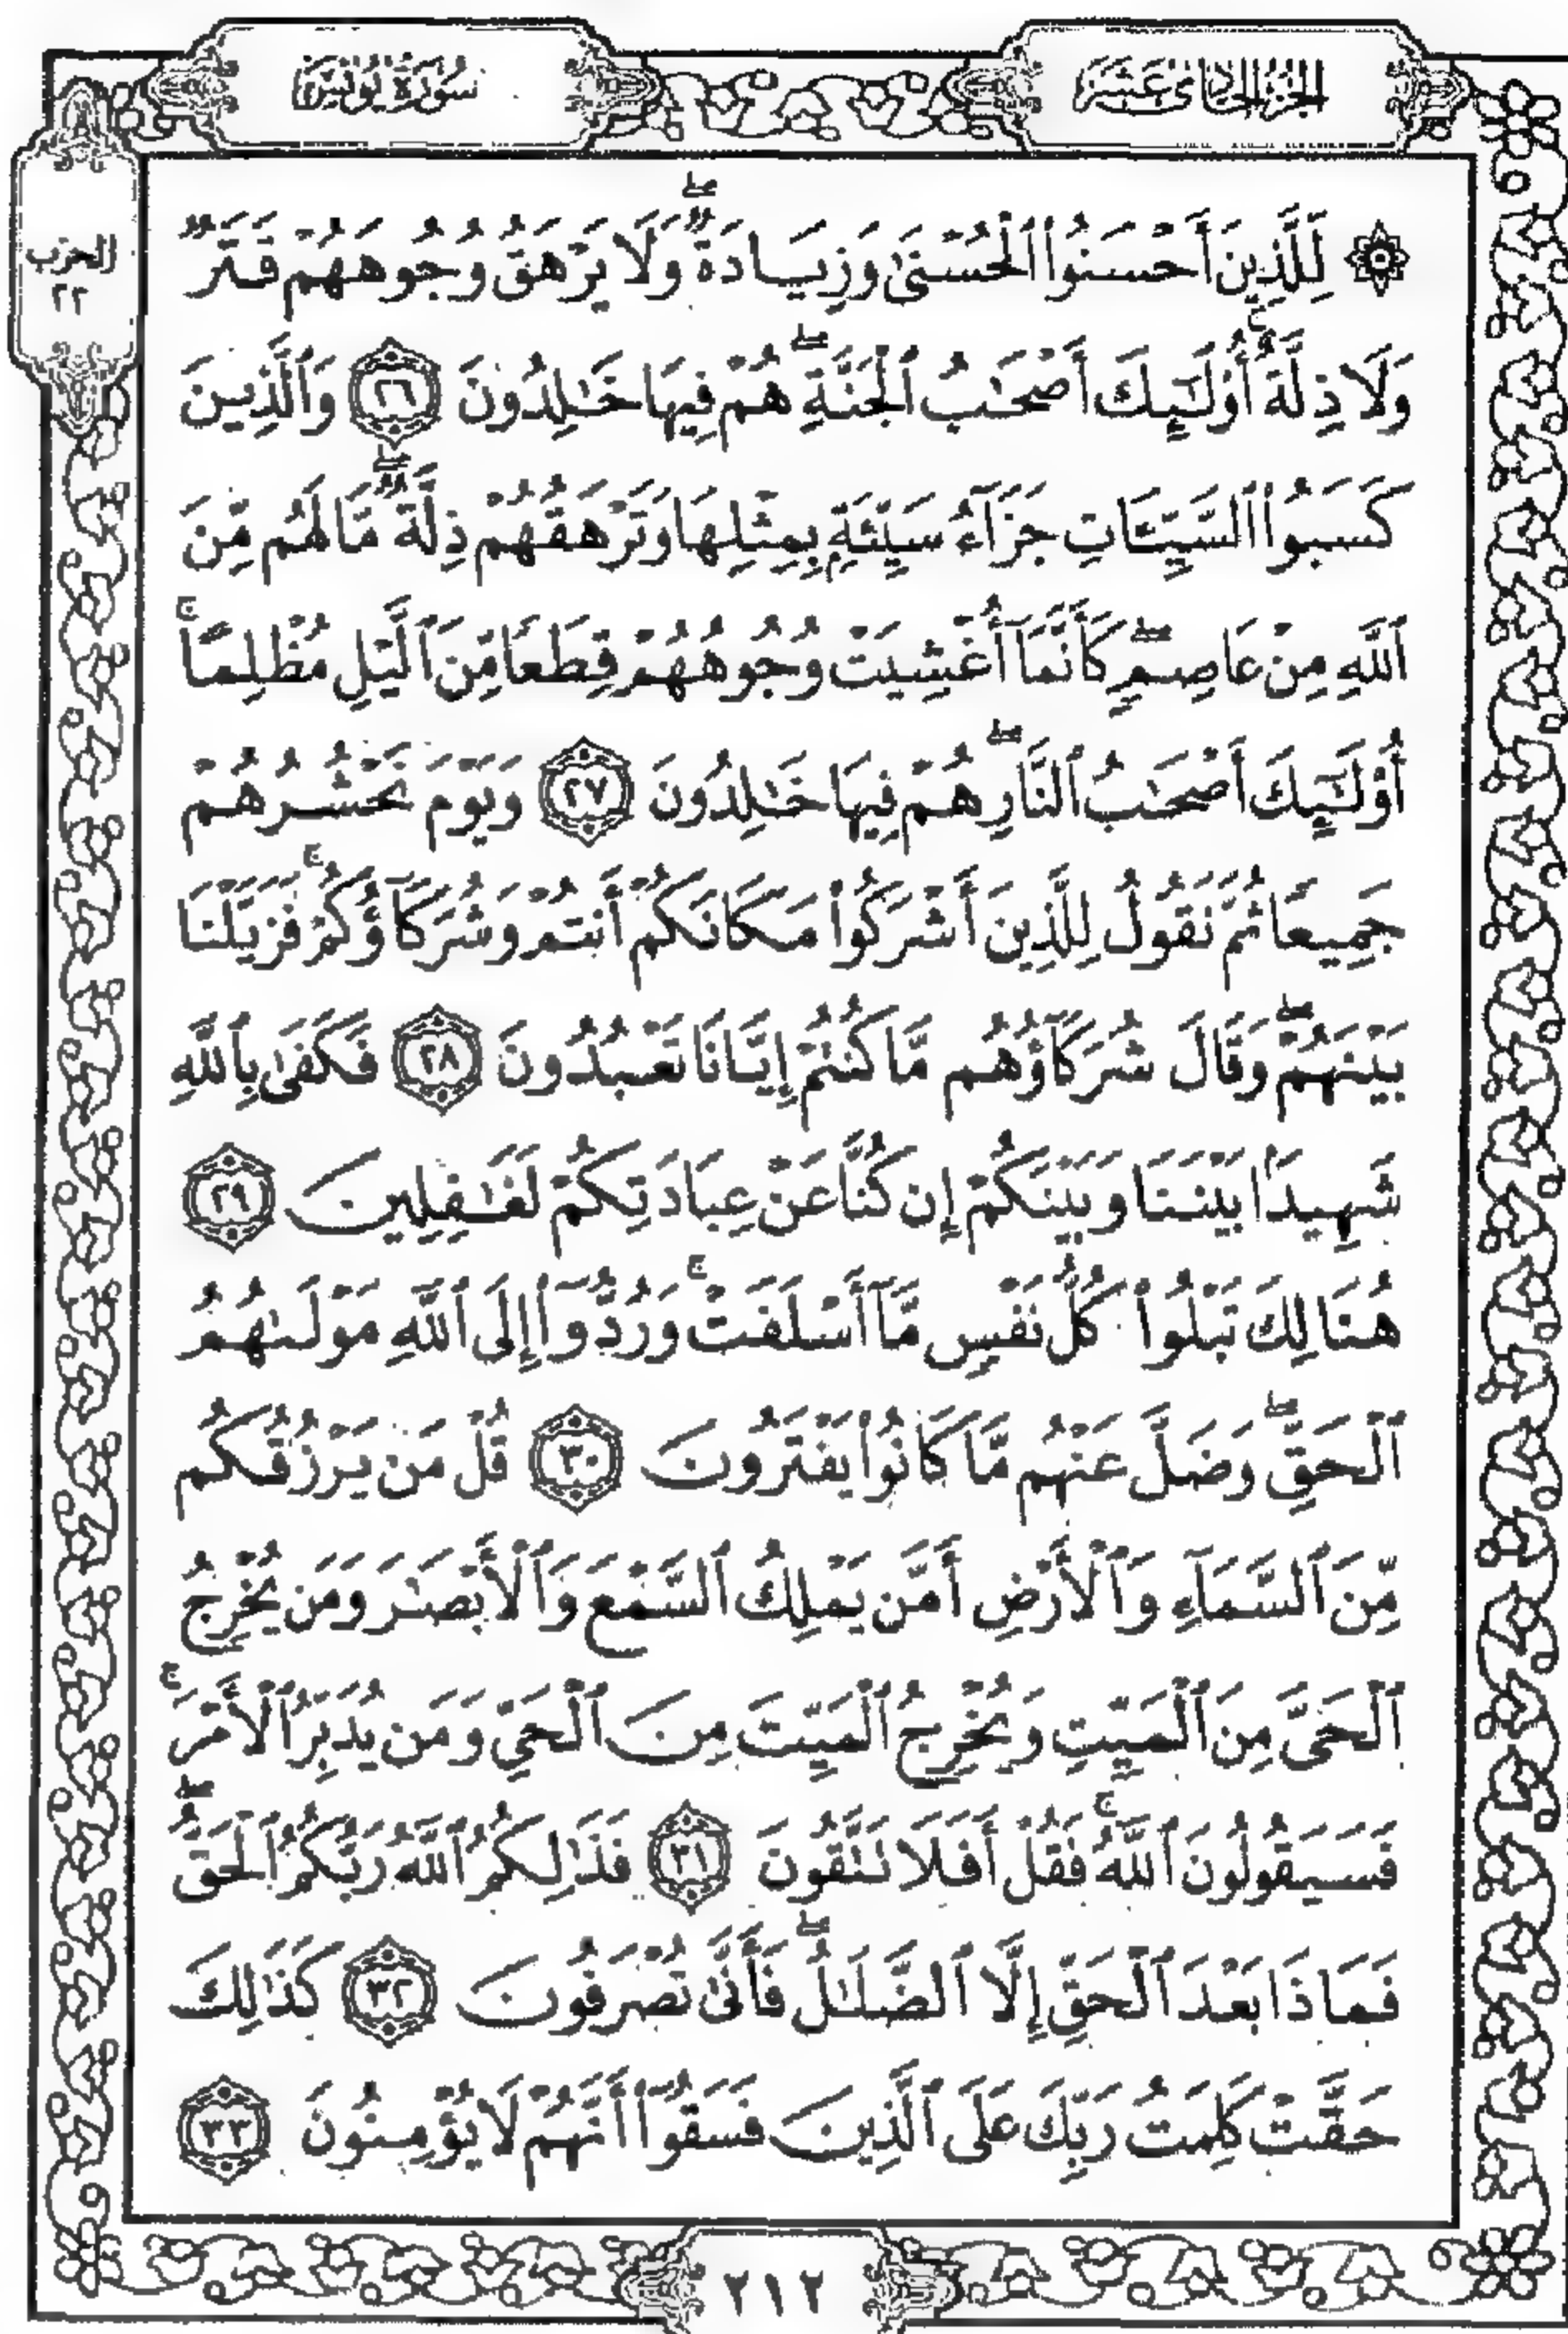 الجزء الحادي عشر
سورة يونس
الحزب
٢٢
۞ لِلَّذِينَ أَحْسَنُوا۟ ٱلْحُسْنَىٰ وَزِيَادَةٌۖ وَلَا يَرْهَقُ وُجُوهَهُمْ قَتَرٌ
وَلَا ذِلَّةٌۚ أُو۟لَـٰٓئِكَ أَصْحَـٰبُ ٱلْجَنَّةِۖ هُمْ فِيهَا خَـٰلِدُونَ ٢٦ وَٱلَّذِينَ
كَسَبُوا۟ ٱلسَّيِّـَٔاتِ جَزَآءُ سَيِّئَةٍۭ بِمِثْلِهَا وَتَرْهَقُهُمْ ذِلَّةٌۖ مَّا لَهُم مِّنَ
ٱللَّهِ مِنْ عَاصِمٍۖ كَأَنَّمَآ أُغْشِيَتْ وُجُوهُهُمْ قِطَعًا مِّنَ ٱلَّيْلِ مُظْلِمًاۚ
أُو۟لَـٰٓئِكَ أَصْحَـٰبُ ٱلنَّارِۖ هُمْ فِيهَا خَـٰلِدُونَ ٢٧ وَيَوْمَ نَحْشُرُهُمْ
جَمِيعًا ثُمَّ نَقُولُ لِلَّذِينَ أَشْرَكُوا۟ مَكَانَكُمْ أَنتُمْ وَشُرَكَآؤُكُمْۚ فَزَيَّلْنَا
بَيْنَهُمْۖ وَقَالَ شُرَكَآؤُهُم مَّا كُنتُمْ إِيَّانَا تَعْبُدُونَ ٢٨ فَكَفَىٰ بِٱللَّهِ
شَهِيدًۢا بَيْنَنَا وَبَيْنَكُمْ إِن كُنَّا عَنْ عِبَادَتِكُمْ لَغَـٰفِلِينَ ٢٩
هُنَالِكَ تَبْلُوا۟ كُلُّ نَفْسٍ مَّآ أَسْلَفَتْۚ وَرُدُّوٓا۟ إِلَى ٱللَّهِ مَوْلَىٰهُمُ
ٱلْحَقِّۖ وَضَلَّ عَنْهُم مَّا كَانُوا۟ يَفْتَرُونَ ٣٠ قُلْ مَن يَرْزُقُكُم
مِّنَ ٱلسَّمَآءِ وَٱلْأَرْضِ أَمَّن يَمْلِكُ ٱلسَّمْعَ وَٱلْأَبْصَـٰرَ وَمَن يُخْرِجُ
ٱلْحَىَّ مِنَ ٱلْمَيِّتِ وَيُخْرِجُ ٱلْمَيِّتَ مِنَ ٱلْحَىِّ وَمَن يُدَبِّرُ ٱلْأَمْرَۚ
فَسَيَقُولُونَ ٱللَّهُۚ فَقُلْ أَفَلَا تَتَّقُونَ ٣١ فَذَٰلِكُمُ ٱللَّهُ رَبُّكُمُ ٱلْحَقُّۖ
فَمَاذَا بَعْدَ ٱلْحَقِّ إِلَّا ٱلضَّلَـٰلُۖ فَأَنَّىٰ تُصْرَفُونَ ٣٢ كَذَٰلِكَ
حَقَّتْ كَلِمَتُ رَبِّكَ عَلَى ٱلَّذِينَ فَسَقُوٓا۟ أَنَّهُمْ لَا يُؤْمِنُونَ ٣٣
٢١٢